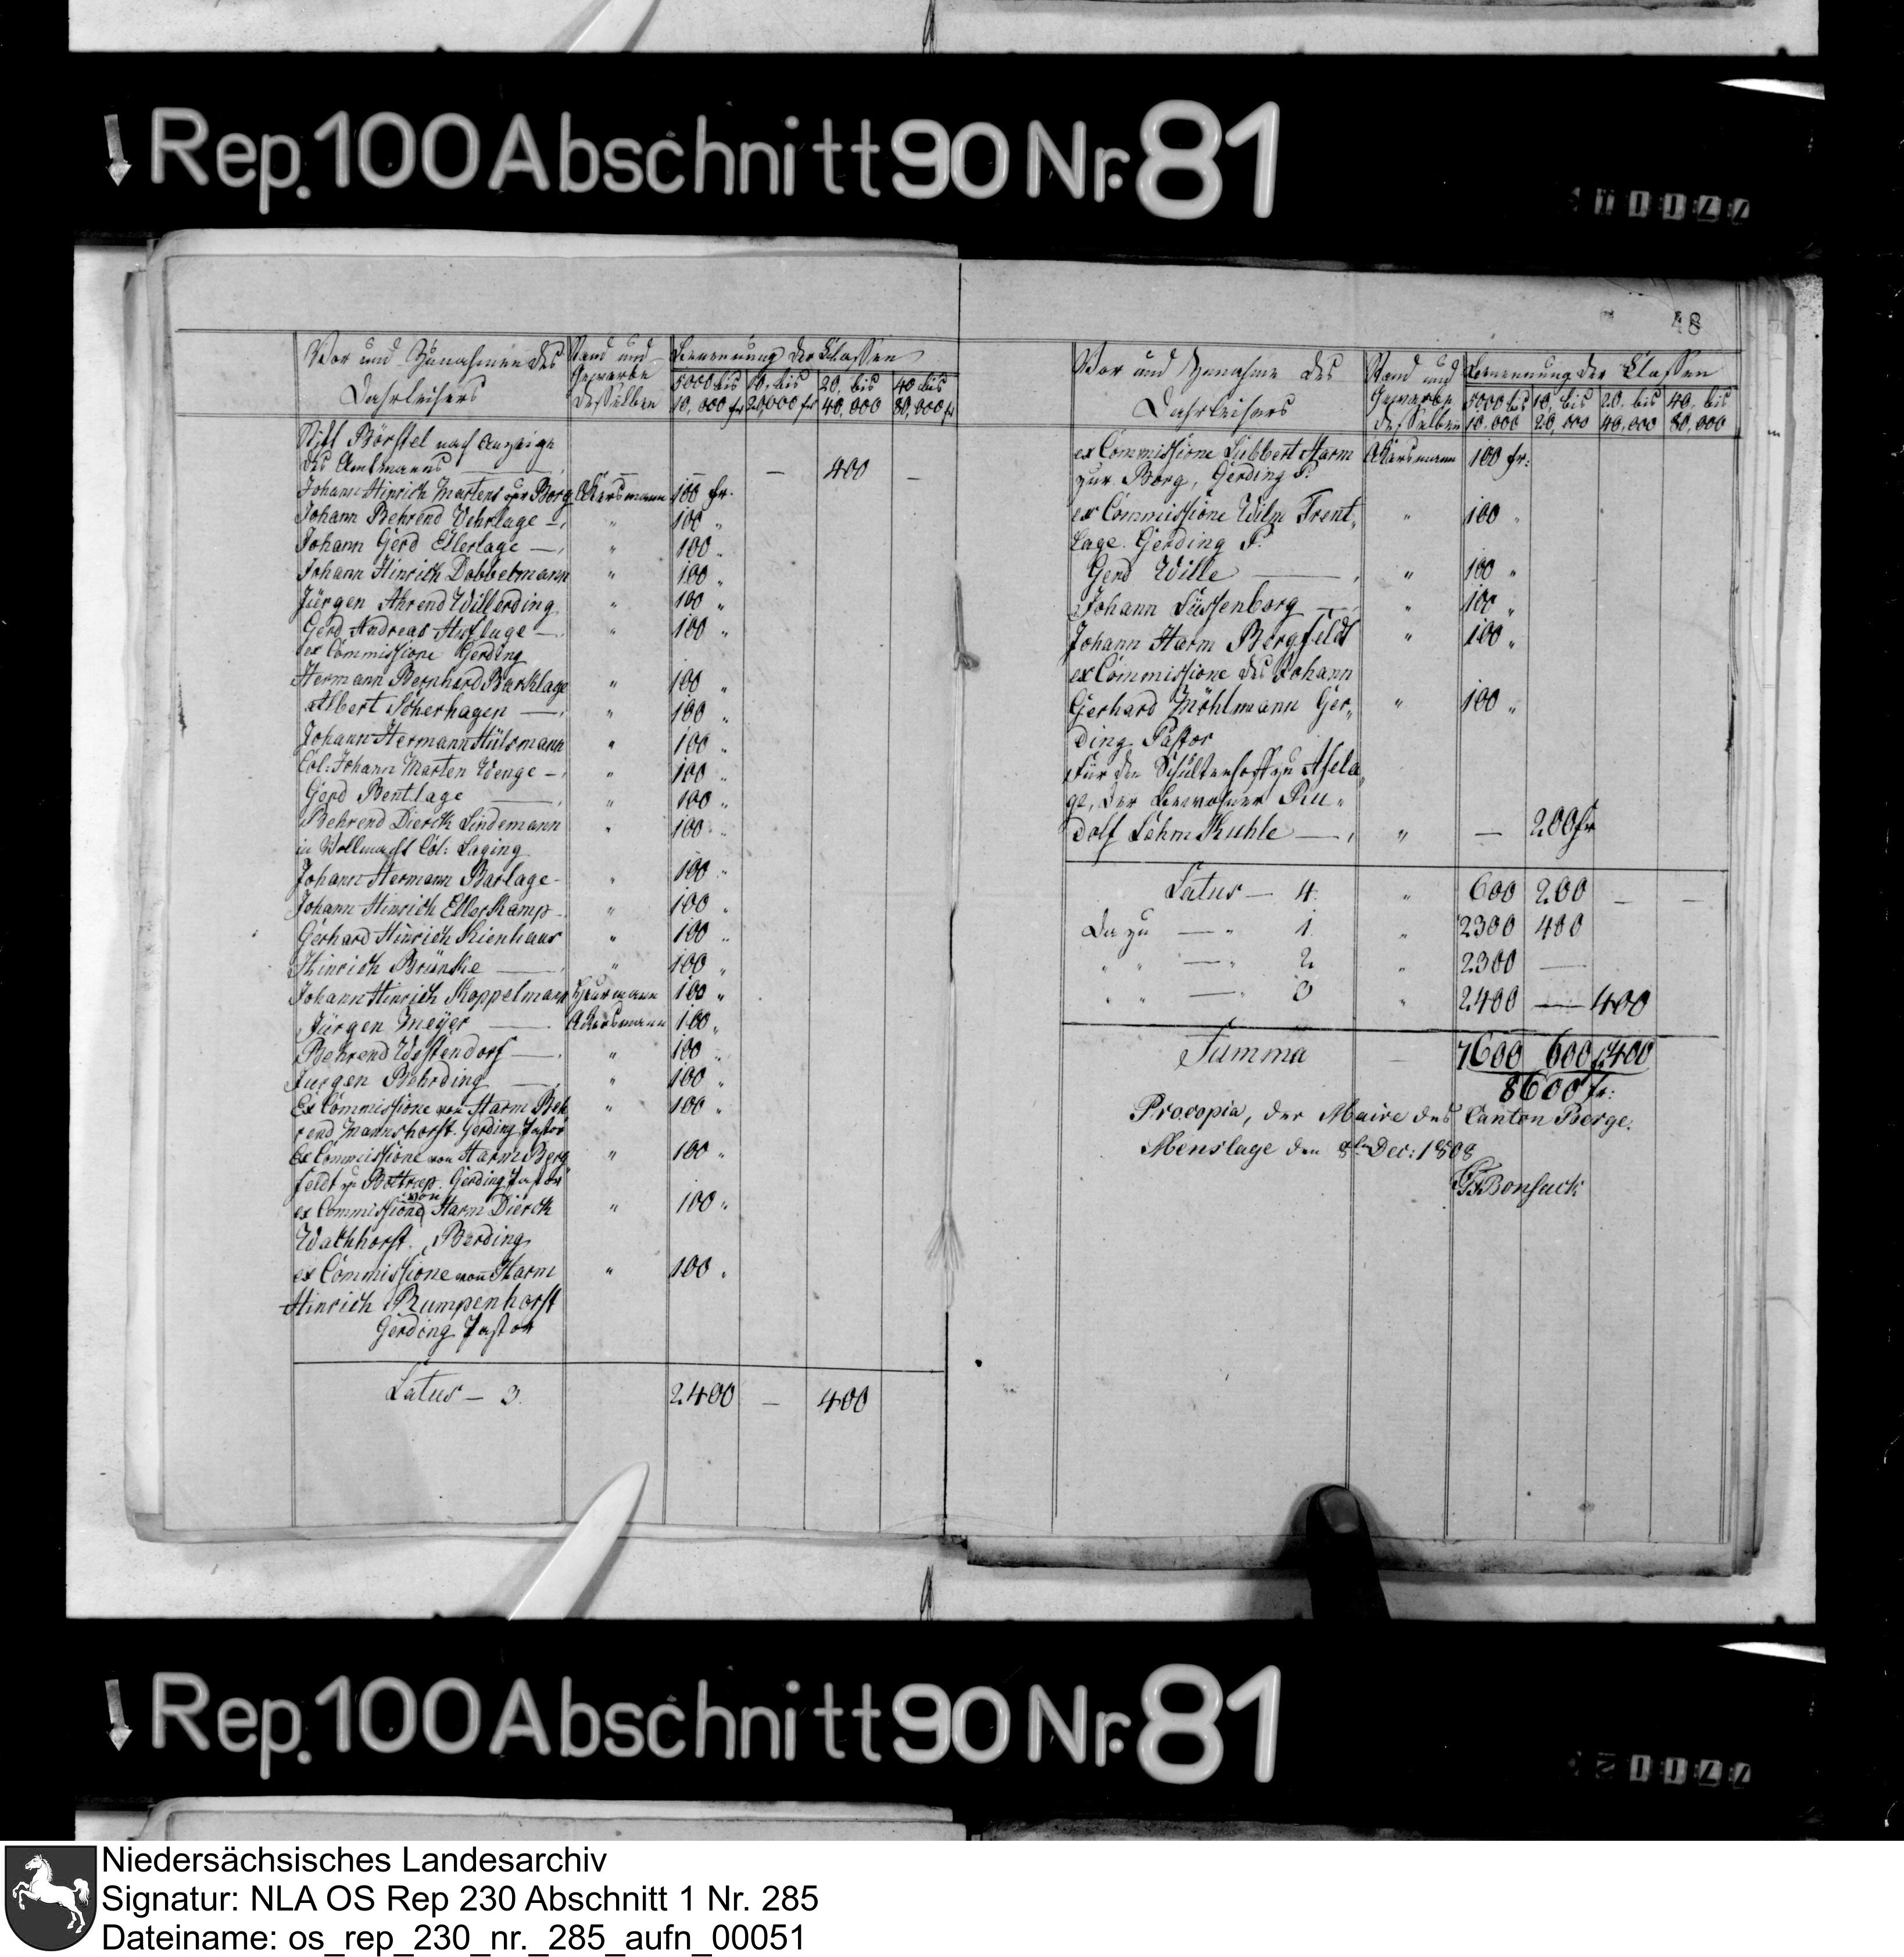 Rep. 100 Abschnitt 90 Nr. 81
Vor und Zunahmen des
Darleihers
Stand und
Gewerbe
desselben
Benennung der Classen
5000 bis
10,000 fr
10, bis
20,000 fr
20, bis
40,000
40 bis
80,000 fr
Stift Börstel nach Anzeige
des Amtmanns — — — 400 —
Johann Hinrich Martens zur Borg Ackersmann 100 fr.
Johann Behrend Vehrlage — " 100 "
Johann Gerd Ellerlage — " 100 "
Johann Hinrich Dobbelmann " 100 "
Jürgen Ahrend Willerding " 100 "
Gerd Andreas Huflage — " 100 "
ex Commissione Gerding
Hermann Bernhard Barklage " 100 "
Albert Söherhagen — " 100 "
Johann Hermann Hülsmann " 100 "
Col: Johann Marten Wenge — " 100 "
Gerd Bentlage — " 100 "
Behrend Dierck Lindemann " 100 "
in Vollmacht Col: Laging
Johann Hermann Barlage - " 100 "
Johann Hinrich Ellerkamp - " 100 "
Gerhard Hinrich Kienhaus " 100 "
Hinrich Brünke — " 100 "
Johann Hinrich Koppelmann Heuermann 100 "
Jürgen Meyer — Ackersmann 100 "
Behrend Westendorf — " 100 "
Jurgen Behrding — " 100 "
Ex Commissione von Harm Beh " 100 "
rend Mannshorst. Gerding Pastor
Ex Commissione von Harm Berg " 100 "
feldt zu Bottrup. Gerding Pastor
ex Commissione von Harm Dierck " 100 "
Wathhorst. Berding
ex Commissione von Harm " 100 "
Hinrich Rumpenhorst
Gerding Pastor
Latus — 3. 2400 — 400
48
Vor und Zunahme des
Darleihers
Stand und
Gewerbe
desselben
Benennung der Classen
5000 bis
10,000
10, bis
20,000
20, bis
40,000
40, bis
80,000
ex Commissione Lübbert Harm Ackersmann 100 fr:
zur Borg, Gerding P.
ex Commissione Wilm Trent „ " 100 "
lage. Gerding P.
Gerd Wille — " 100 "
Johann Süssenborg — " 100 "
Johann Harm Bergfeldt " 100 "
ex Commissione des Johann
Gerhard Möhlmann Ger„ " 100 "
ding Pastor
Für den Schultenhoff zu Ahsla„
ge, der Bewohner Ru„
dolf Lehmkuhle — " — 200 fr
Latus — 4. " 600 200 — —
Dazu — " 1. " 2300 400
" " — " 2 " 2300 —
" " — " 3 " 2400 — 400
Summa — 7600 600 400
8600 fr:
Procopia, der Maire des Canton Berge.
Menslage den 8ten Dec: 1808
Bonsack
Rep. 100 Abschnitt 90 Nr. 81
Niedersächsisches Landesarchiv
Signatur: NLA OS Rep 230 Abschnitt 1 Nr. 285
Dateiname: os_rep_230_nr._285_aufn_00051